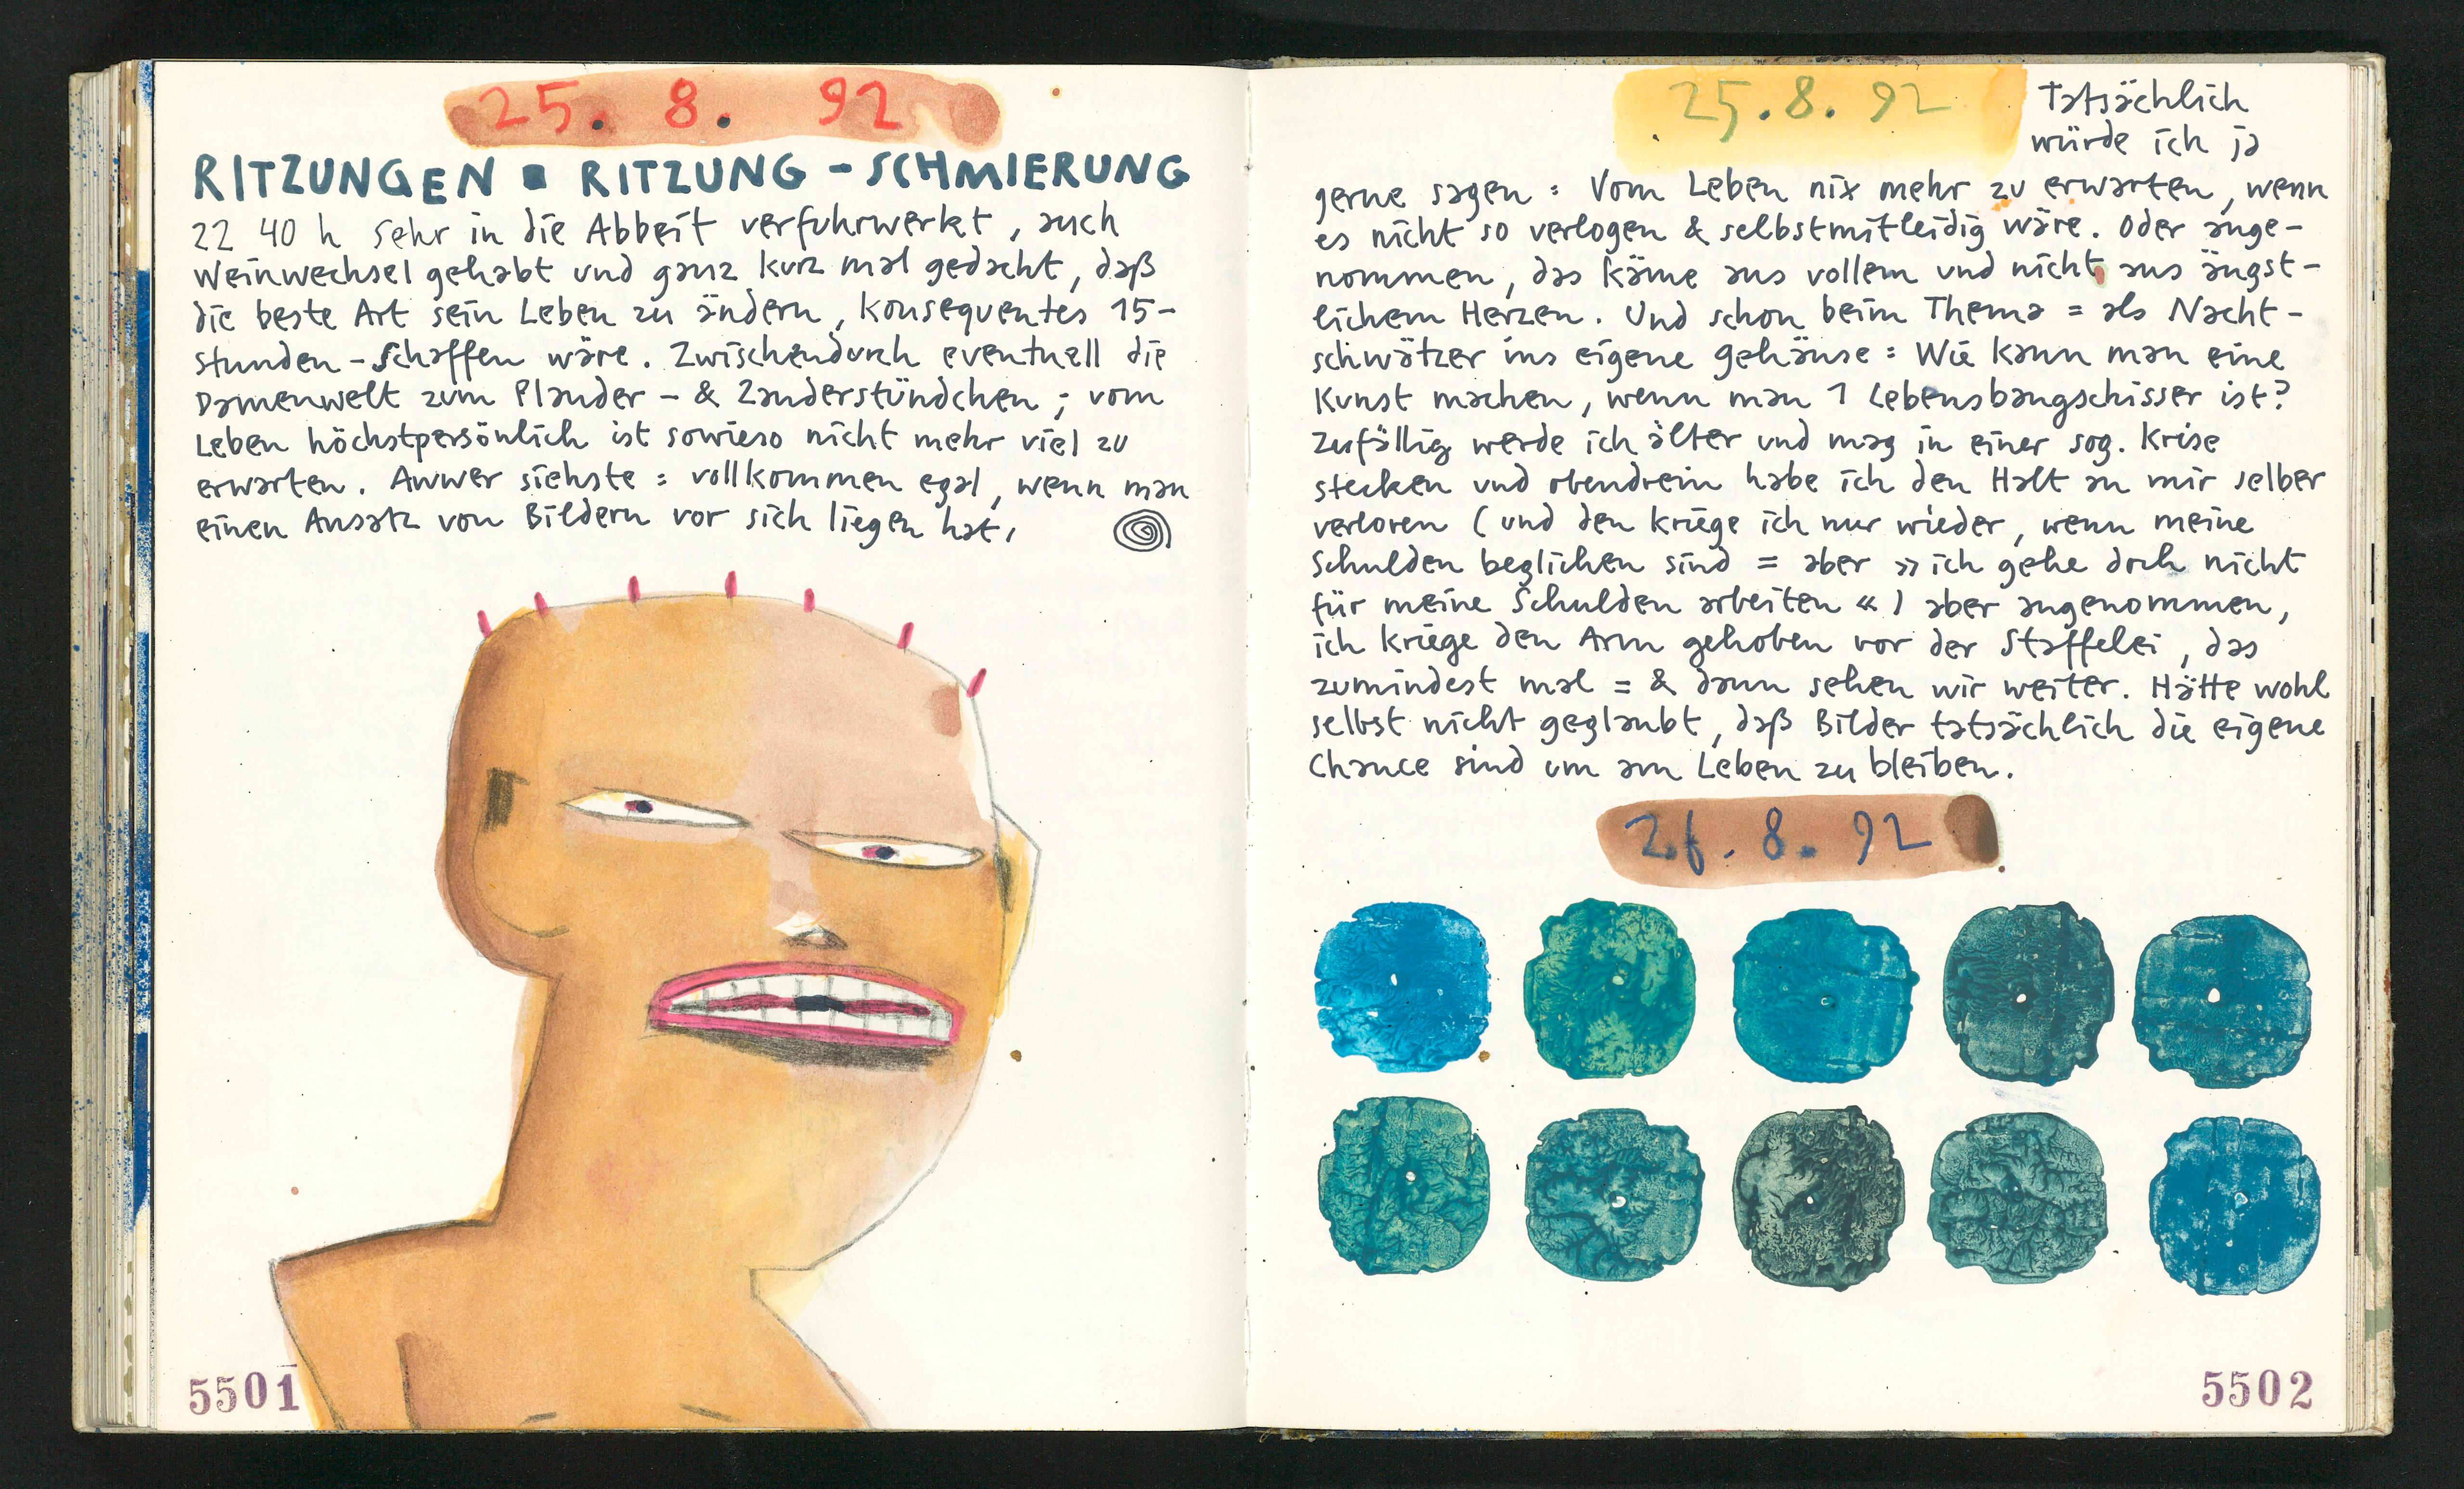 25. 8. 92
RITZUNGEN ▪ RITZUNG - SCHMIERUNG
22 40 h Sehr in die Abbeit verfuhrwerkt, auch
Weinwechsel gehabt und ganz kurz mal gedacht, daß
die beste Art sein Leben zu ändern, Konsequentes 15-
stunden-Schaffen wäre. Zwischendurch eventuell die
Damenwelt zum Plauder- & Zauderstündchen; vom
Leben höchstpersönlich ist sowieso nicht mehr viel zu
erwarten. Auwer siehste: vollkommen egal, wenn man
einen Ansatz von Bildern vor sich liegen hat.
5501
25.8.92
Tatsächlich
würde ich ja
gerne sagen: Vom Leben nix mehr zu erwarten, wenn
es nicht so verlogen & selbstmitleidig wäre. Oder ange-
nommen, das käme aus vollem und nicht aus ängst-
lichem Herzen. Und schon beim Thema = als Nacht-
schwätzer ins eigene Gehäuse: Wie kann man eine
Kunst machen, wenn man 1 Lebensbangschisser ist?
Zufällig werde ich älter und mag in einer sog. Krise
stecken und obendrein habe ich den Halt an mir selber
verloren (und den kriege ich nur wieder, wenn meine
Schulden beglichen sind = aber »ich gehe doch nicht
für meine Schulden arbeiten«) aber angenommen,
ich kriege den Arm gehoben vor der Staffelei, das
zumindest mal = & dann sehen wir weiter. Hätte wohl
selbst nicht geglaubt, daß Bilder tatsächlich die eigene
Chance sind um am Leben zu bleiben.
26. 8. 92
5502